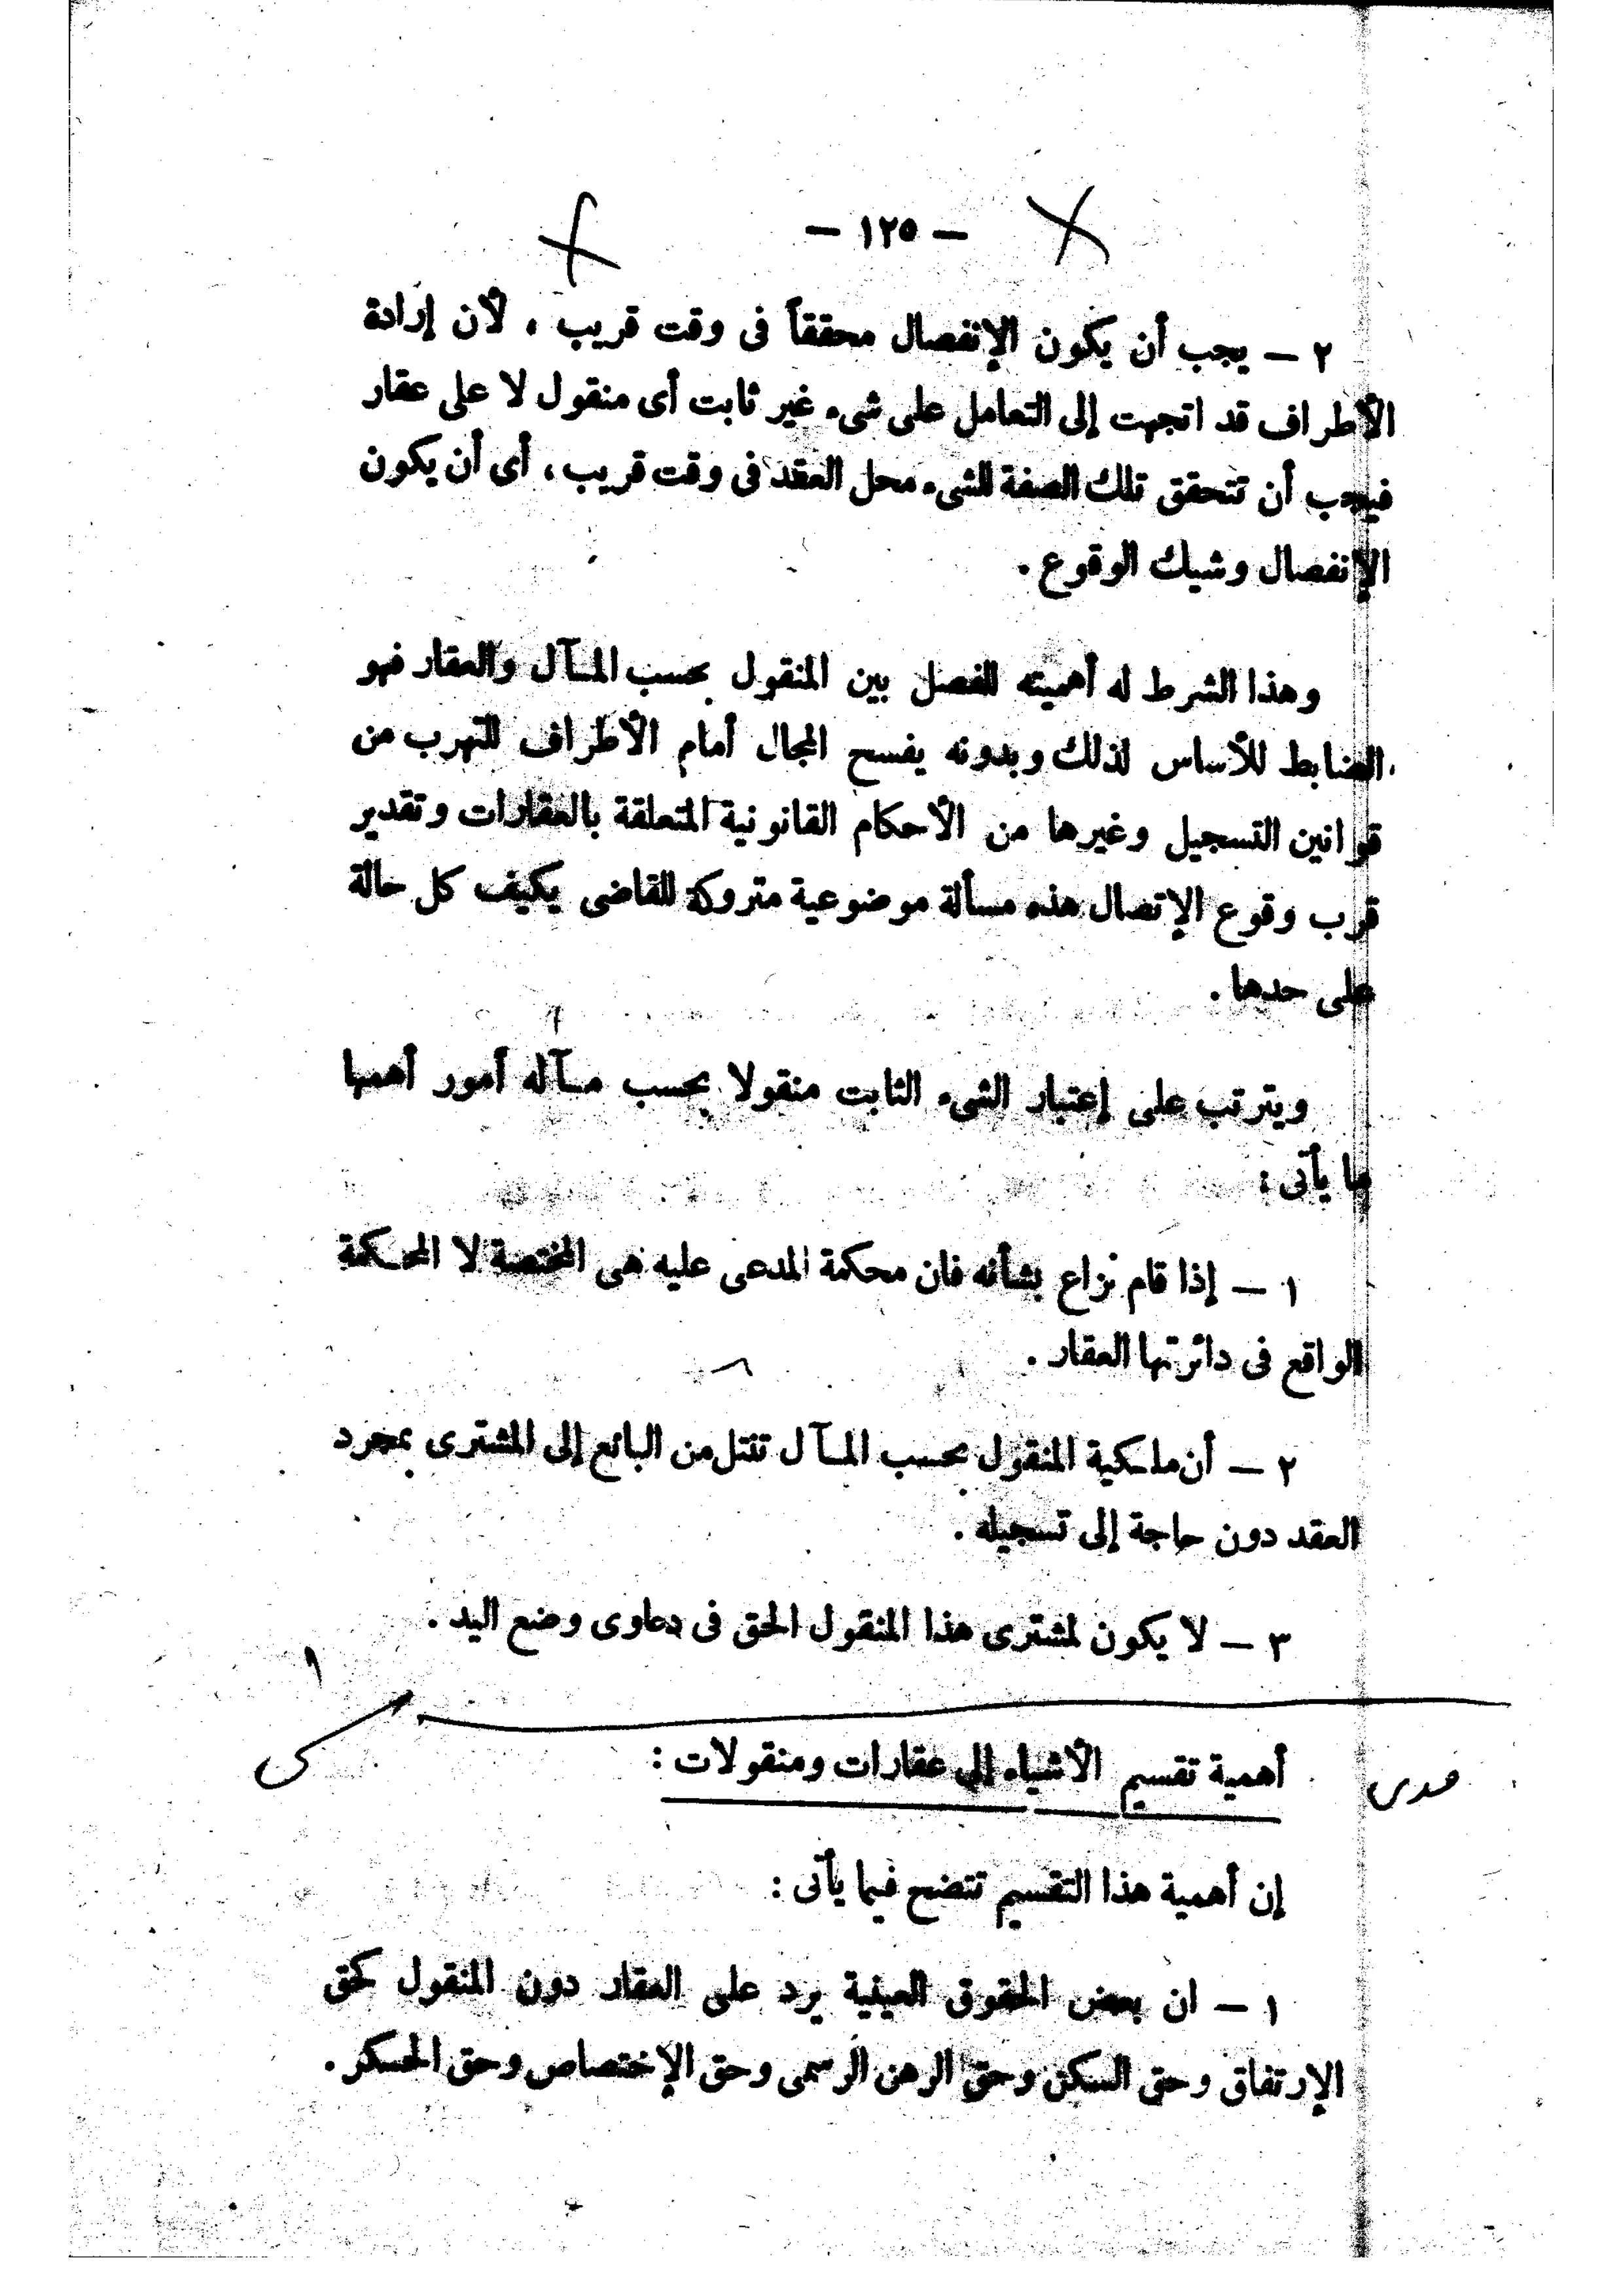 — ١٢٥ —
٢ — يجب أن يكون الإنفصال محققاً فى وقت قريب ، لأن إرادة
الأطراف قد اتجهت إلى التعامل على شىء غير ثابت أى منقول لا على عقار
فيجب أن تتحقق تلك الصفة للشىء محل العقد فى وقت قريب ، أى أن يكون
الإنفصال وشيك الوقوع .
وهذا الشرط له أهميته للفصل بين المنقول بحسب المآل والعقار فهو
الضابط للأساس لذلك وبدونه يفسح المجال أمام الأطراف للتهرب من
قوانين التسجيل وغيرها من الأحكام القانونية المتعلقة بالعقارات وتقدير
قرب وقوع الإتصال هذه مسألة موضوعية متروكة للقاضى يكيف كل حالة
على حدها .
ويترتب على إعتبار الشىء الثابت منقولا بحسب مآله أمور أهمها
ما يأتى :
١ — إذا قام نزاع بشأنه فان محكمة المدعى عليه هى المختصة لا المحكمة
الواقع فى دائرتها العقار .
٢ — أن ملكية المنقول بحسب المآل تنتل من البائع إلى المشترى بمجرد
العقد دون حاجة إلى تسجيله .
٣ — لا يكون لمشترى هذا المنقول الحق فى دعاوى وضع اليد .
أهمية تقسيم الأشياء إلى عقارات ومنقولات :
إن أهمية هذا التقسيم تتضح فيما يأتى :
١ — ان بعض الحقوق العينية يرد على العقار دون المنقول كحق
الإرتفاق وحق السكن وحق الرهن الرسمى وحق الإختصاص وحق الحكر .